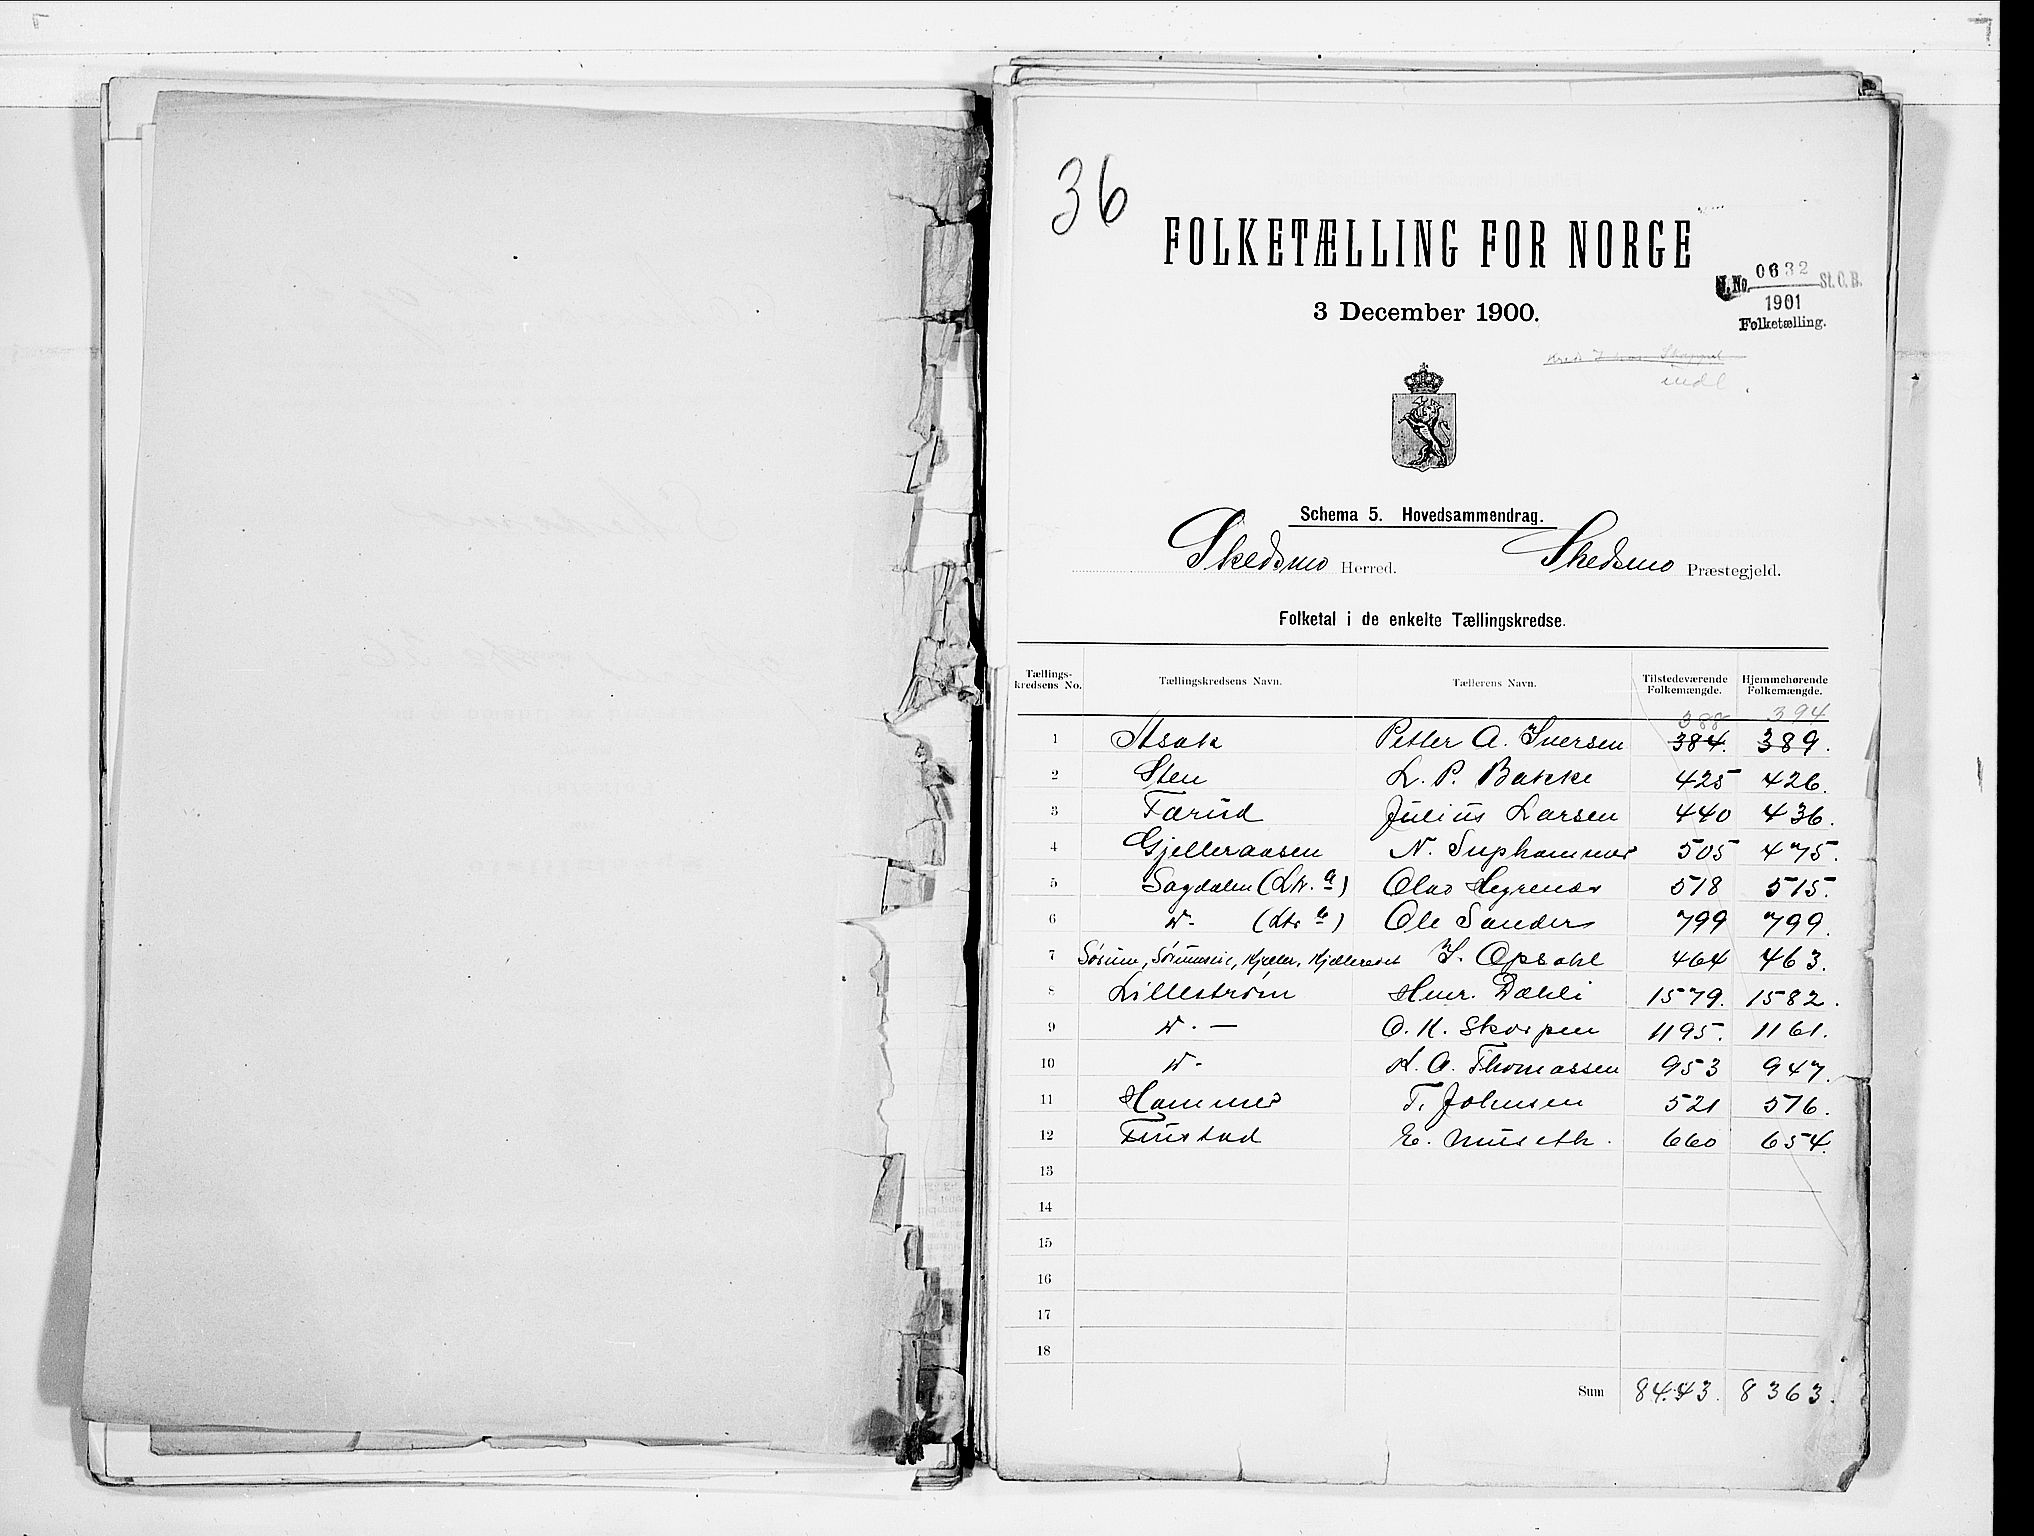 36
FOLKETÆLLING FOR NORGE
3 December 1900.
J. No. 0632 St. O. B.
1901
Folketælling.
indl
Schema 5. Hovedsammendrag.
Skedsmo Herred. Skedsmo Præstegjeld.
Folketal i de enkelte Tællingskredse.
Tællings-kredsens No. Tællingskredsens Navn. Tællerens Navn. Tilstedeværende Folkemængde. Hjemmehørende Folkemængde.
388 394
1 Asak Petter A. Iversen 384. 389.
2 Sten L. P. Bakke 425 426.
3 Farud Julius Larsen 440 436.
4 Gjelleraasen N. 505 475.
5 Sagdalen (Ltr. a) Olav 518 515.
6 D- (Ltr b) Ole Sanders 799 799.
7 Sørum, Kjeller, I. Opsahl 464 463.
8 Lillestrøm Hmr. Dæhli 1579. 1582.
9 D. — O. K. Skorpen 1195. 1161.
10 D- A. Thomassen 953 947.
11 Hammer T. Johnsen 521 516.
12 Finstad E. Museth. 660 654.
13
14
15
16
17
18
Sum 8443. 8363.